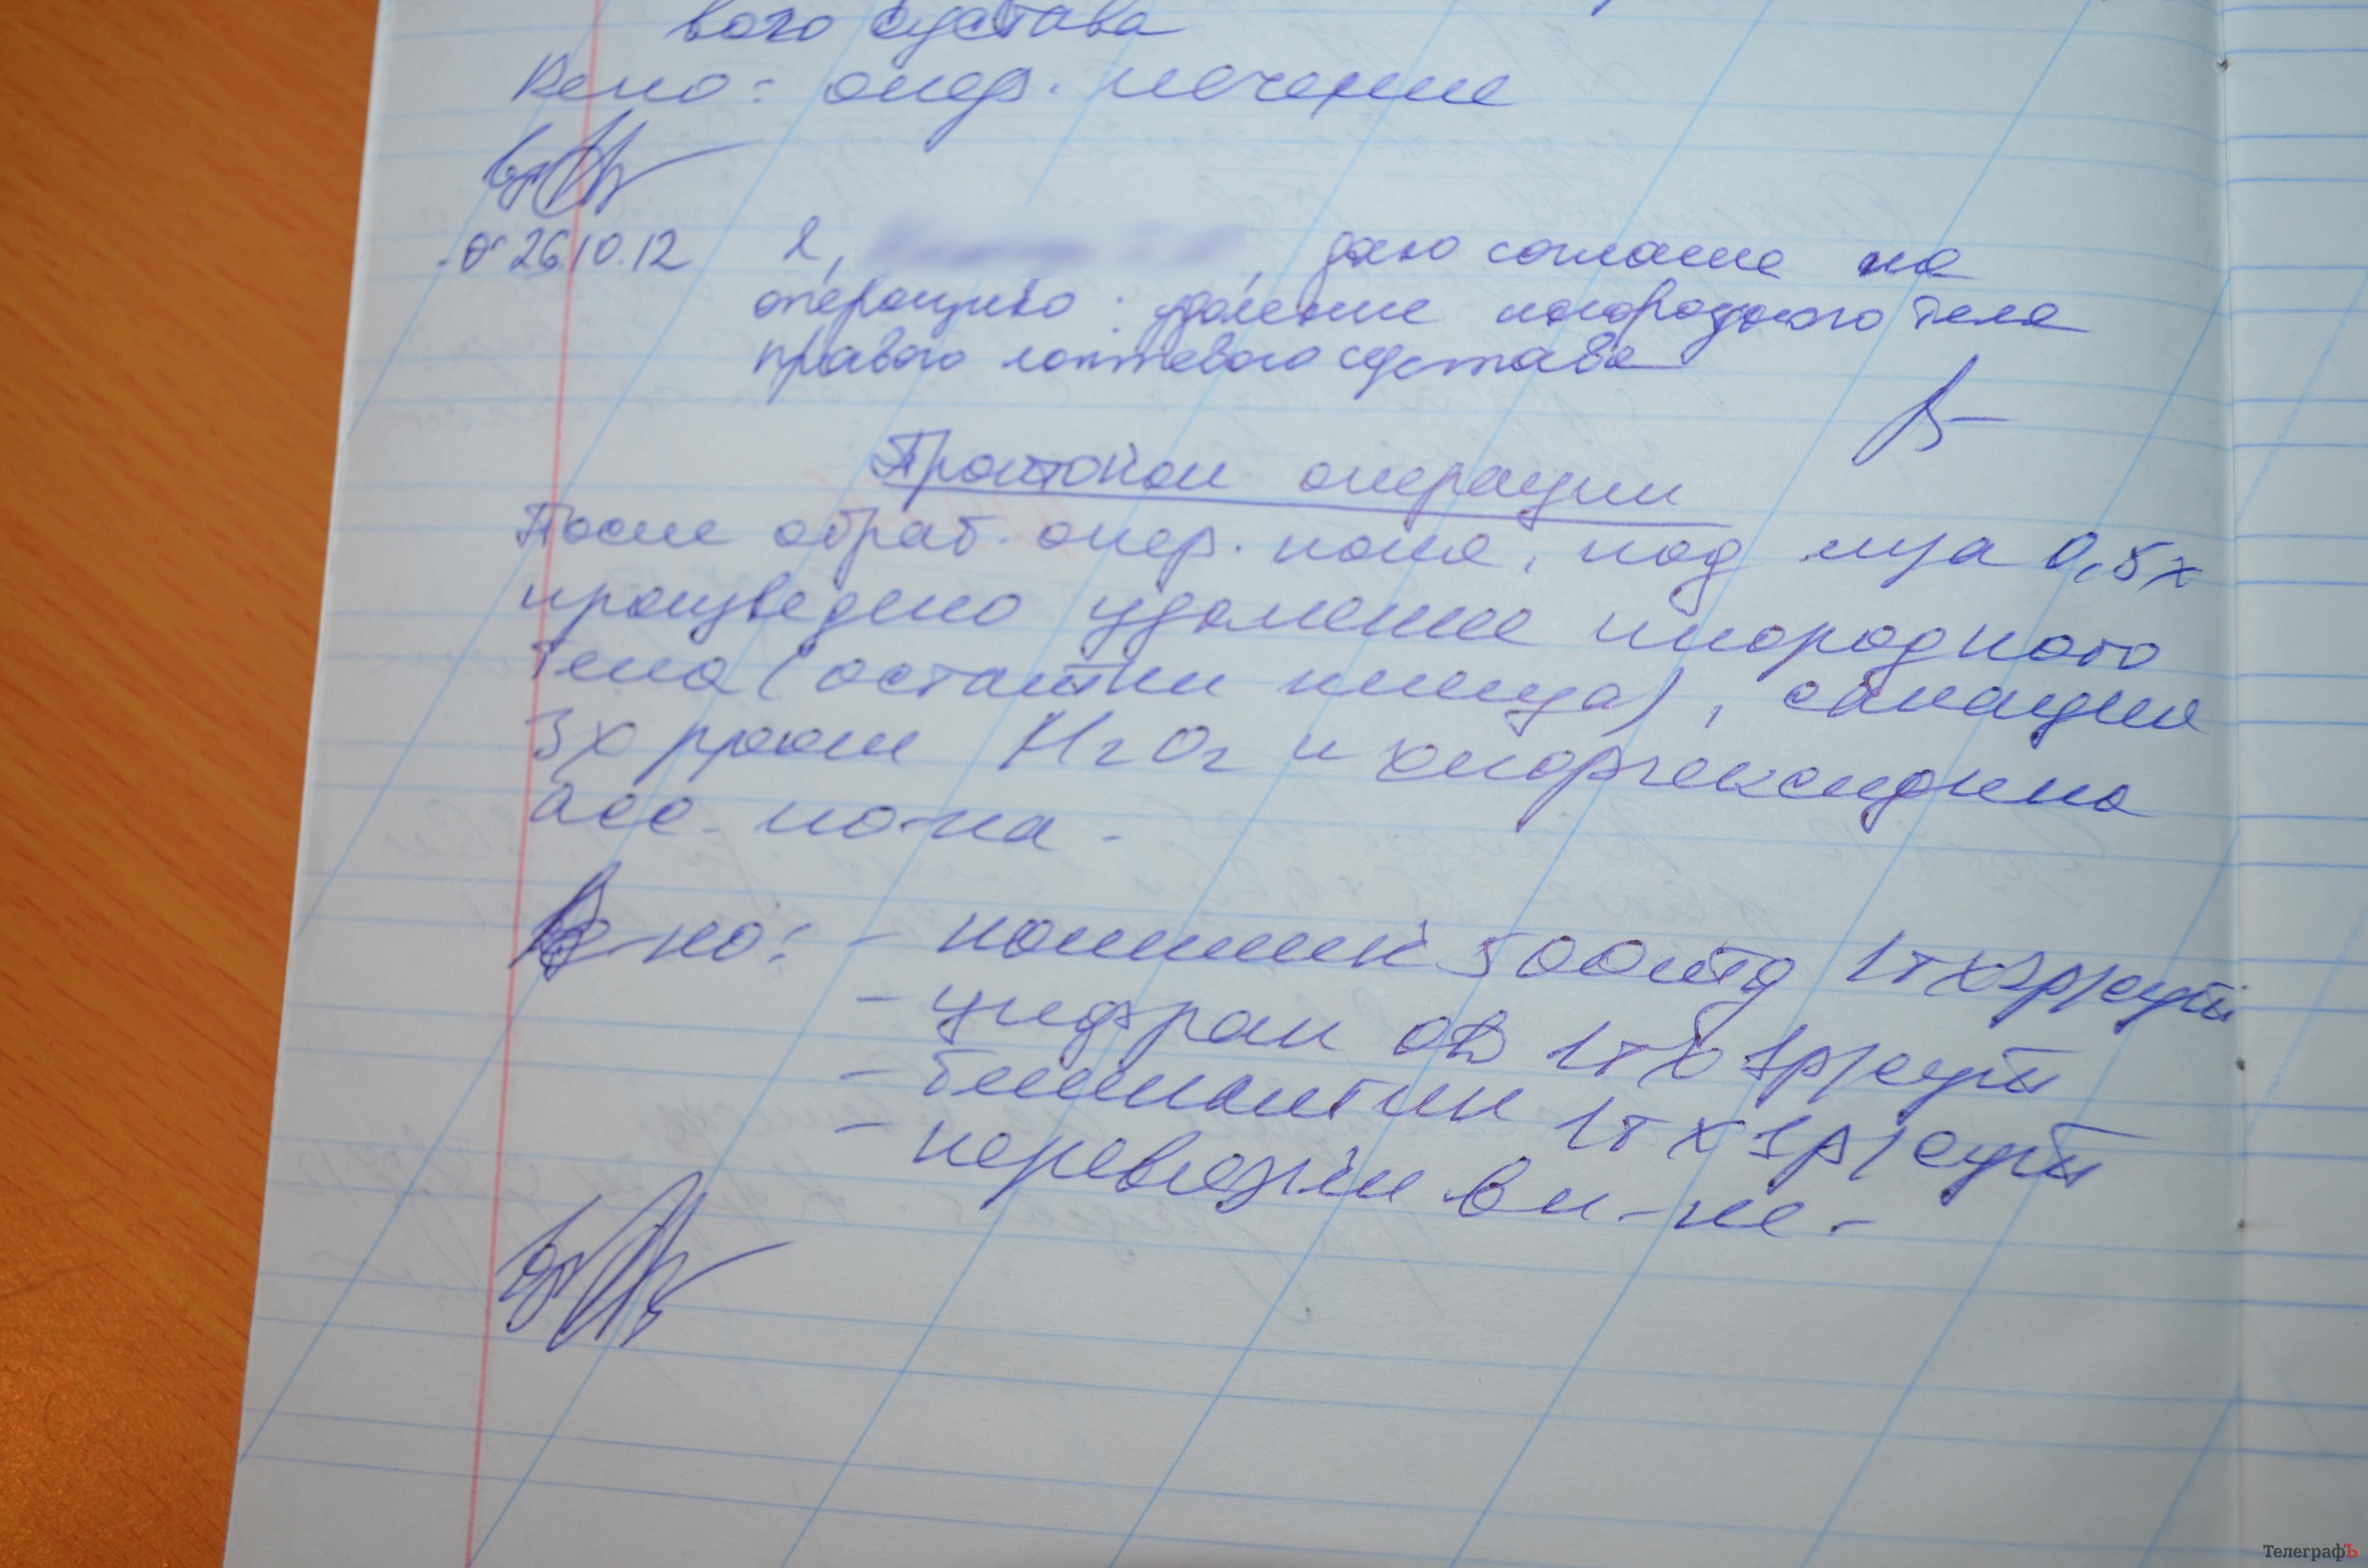 вого сустава
Рек-но: опер. лечение
26.10.12 Я, даю согласие на
операцию: удаление инородного тела
правого локтевого сустава
Протокол операции
После обраб. опер. поля, под м/а 0,5%
произведено удаление инородного
тела (остатки клеща), санация
3х проц H2O2 и хлоргексидина
асс. по-ка.
Рек-но: - 500 1т х р/сут
- цифран ОД 1т х 1р/сут
- 1т х 1р/сут
- перевязки в п-ке.
ТелеграфЪ